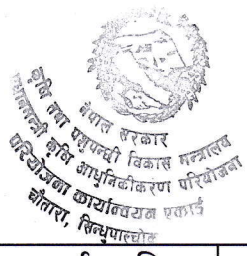 नेपाल सरकार
कृषि तथा पशुपन्छी विकास मन्त्रालय
प्रधानमन्त्री कृषि आधुनिकीकरण परियोजना
परियोजना कार्यान्वयन एकाई
चौतारा, सिन्धुपाल्चोक